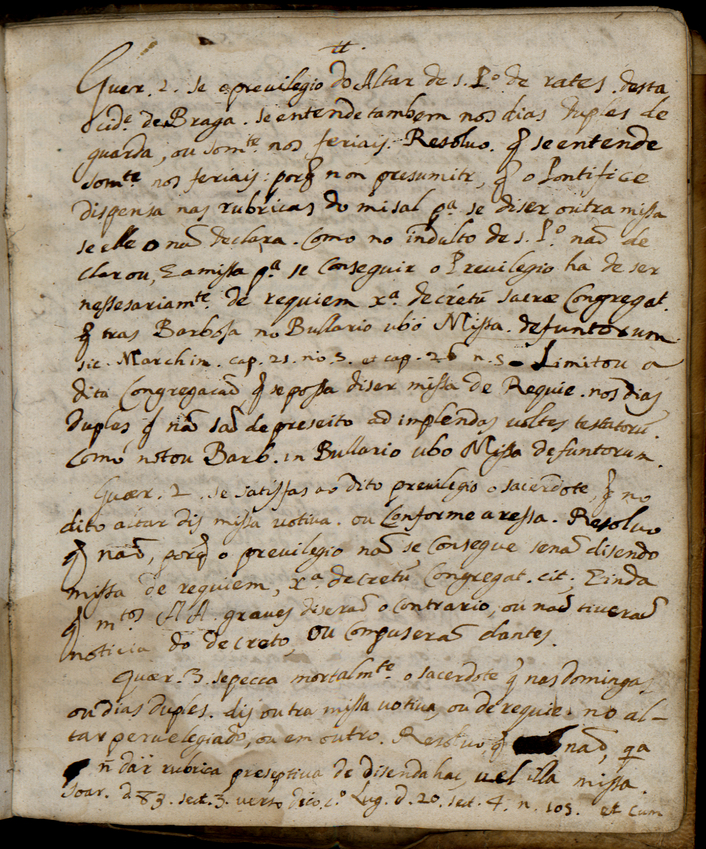 tt.
Quær. 2. se o previlegio do Altar de S. P.º de rates. desta
cid.e de Braga. se entende tambem nos dias duples de
guarda, ou som.te nos feriais. Resolvo. q̃ se entende
som.te nos feriais: porq̃ non presumitr, q̃ o Pontifice
dispensa nas rubricas do misal p.a se diser outra missa
se elle o naõ declara. Como no indulto de S. P.º naõ de
clarou, E a missa p.a se conseguir o Previlegio ha de ser
nessesariam.te de requiem x.a decretũ sacræ Congregat.
q̃ tras Barbosa no Bullario ubo Missa defuntorum
sic. Marchin. cap. 21. nº. 3. et cap. n. 5 Limitou a
dita Congregacaõ q̃ se possa diser missa de Requie. nos dias
duples q̃ naõ saõ de preseito ad implendas voltes testatorũ.
Como notou Barb. in Bullario ubo Missa defuntorum.
Quær. 2. se satisfas ao dito previlegio o sacerdote, q̃ no
dito altar dis missa votiva. ou Conforme a ressa. Resolvo
q̃ naõ, porq̃ o previlegio naõ se consegue senaõ disendo
missa de requiem, x.a decretũ Congregat. cit; Einda
q̃ m.tos AA. graves diseraõ o contrario, ou naõ tiveraõ
noticia do decreto, ou compuseraõ dantes.
Quær. 3. se pecca mortalm.te o sacerdote q̃ nas domingas,
ou dias duples. dis outra missa votiva, ou de requie. no al-
tar pervelegiado, ou em outro. Resolvo, q̃ naõ, q.a
ñ dar rubrica preseptiva de disenda hac, vel illa missa.
Soar. d. 83. sect. 3. verso dico. Lug. d. 20. sect. 4. n. 105. et cum